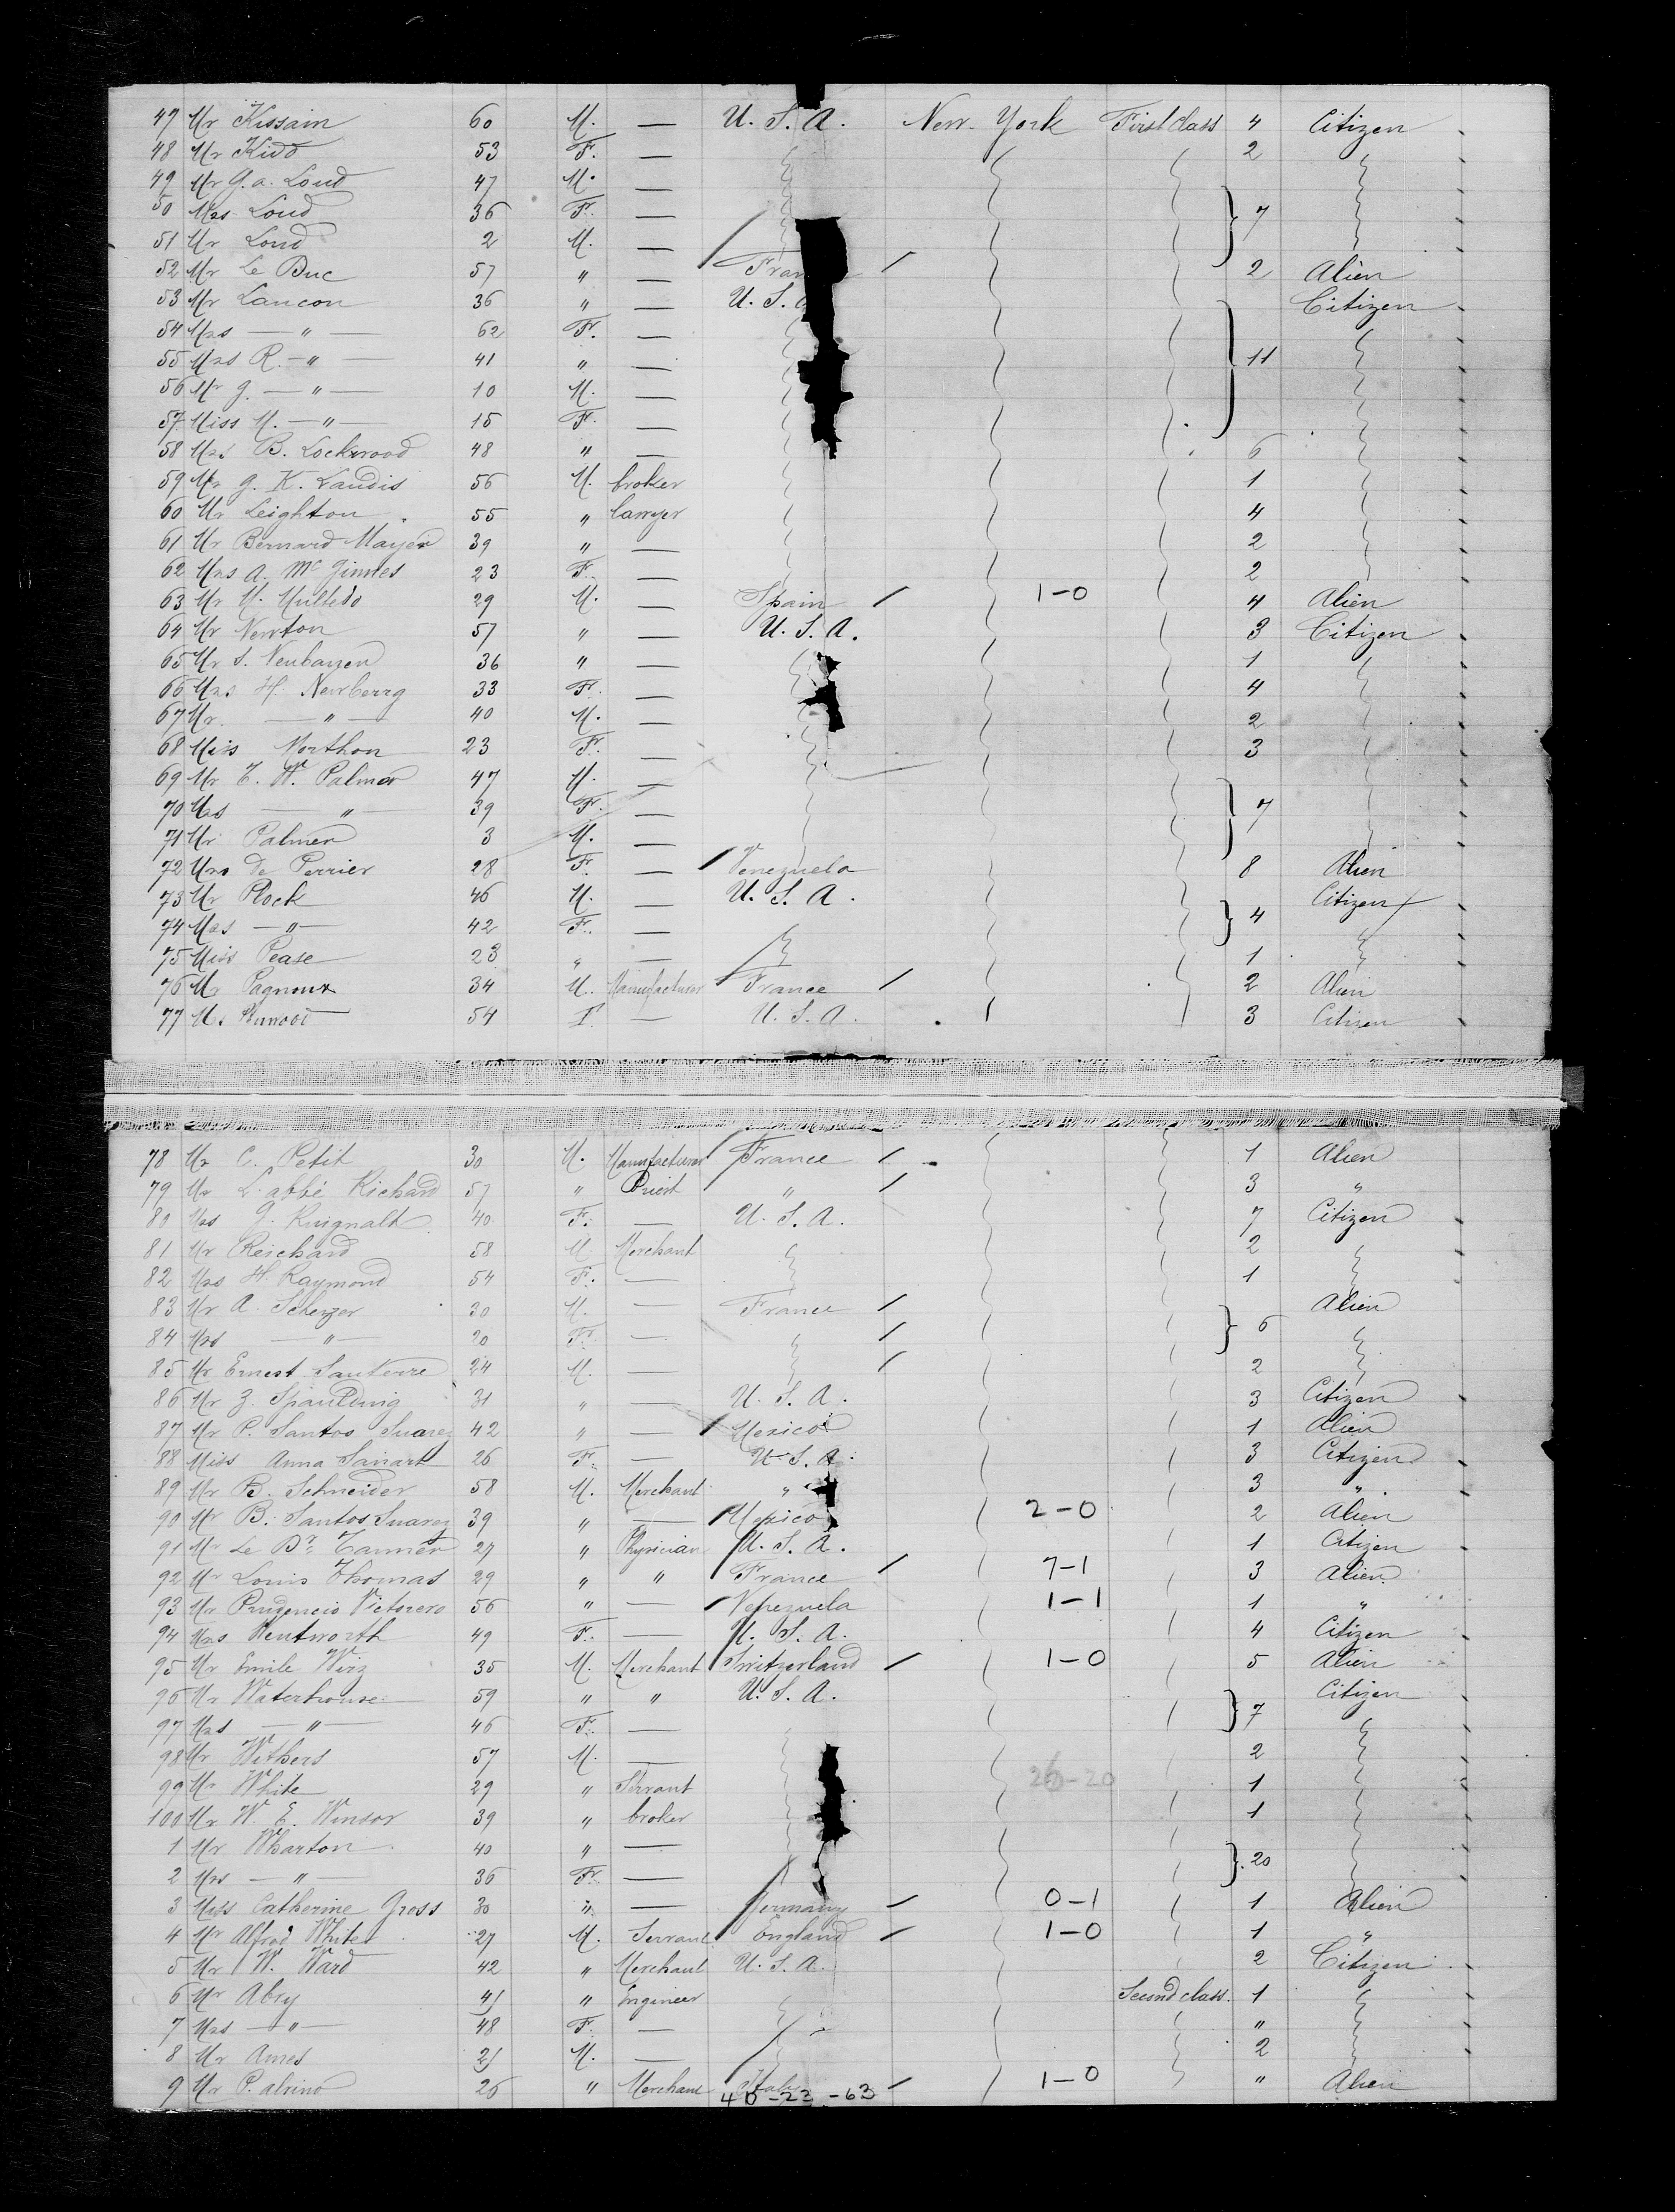 47 Mr Kissain 60 M. — U. S. A. New-York First class 4 Citizen
48 Mr Kidd 53 F. — 2
49 Mr G. a. Loud 47 M. —
50 Mrs Loud 36 F. — 7
51 Mr Loud 2 M. —
52 Mr Le Duc 57 " — Fran 2 Alien
53 Mr Lancon 36 " — U. S. Citizen
54 Mrs — " — 62 F. —
55 Mrs R. — " — 41 " — 11
56 Mr G. — " — 10 M. —
57 Miss M. — " — 15 F. —
58 Mrs B. Lockwood 48 " — 6
59 Mr G. K. Landis 56 M. broker 1
60 Mr Leighton 55 " lawyer 4
61 Mr Bernard Mayer 39 " — 2
62 Mrs A. Mc Ginnes 23 F. — 2
63 Mr M. 29 M. — Spain 1-0 4 Alien
64 Mr Newton 57 " — U. S. A. 3 Citizen
65 Mr S. 36 " — 1
66 Mrs H. Newberg 33 F. — 4
67 Mr — " — 40 M. — 2
68 Miss Northon 23 F. — 3
69 Mr T. W. Palmer 47 M. —
70 Mrs — " — 39 F. — 7
71 Mr Palmer 3 M. —
72 Mrs de Perrier 28 F. — Venezuela 8 Alien
73 Mr Plock 46 M. — U. S. A. Citizen
74 Mrs — " — 42 F. — 4
75 Miss Pease 23 " — 1
76 Mr Pagnoux 34 M. Manufacturer France 2 Alien
77 54 F. — U. S. A. 3 Citizen
78 Mr C. Petit 30 M. Manufacturer France 1 Alien
79 Mr L'abbé Richard 57 " Priest " 3 "
80 Mrs G. 40 F. — U. S. A. 7 Citizen
81 Mr Reichard 58 M. Merchant 2
82 Mrs H. Raymond 54 F. — 1
83 Mr A. Scherzer 30 M. — France Alien
84 Mrs — " — 20 F. — 6
85 Mr Ernest Santerre 24 M. — 2
86 Mr Z. Spaulding 31 " — U. S. A. 3 Citizen
87 Mr P. Santos Suarez 42 " — Mexico 1 Alien
88 Miss Anna Sanart 26 F. — U. S. A. 3 Citizen
89 Mr B. Schneider 58 M. Merchant " 3 "
90 Mr B. Santos Suarez 39 " — Mexico 2-0 2 Alien
91 Mr Le Dr Tanner 27 " Physician U. S. A. 1 Citizen
92 Mr Louis Thomas 29 " " France 7-1 3 Alien
93 Mr Prudencio Victorero 56 " — Venezuela 1-1 1 "
94 Mrs Wentworth 49 F. — U. S. A. 4 Citizen
95 Mr Emile Wirz 35 M. Merchant Switzerland 1-0 5 Alien
96 Mr Waterhouse 59 " " U. S. A. Citizen
97 Mrs — " — 46 F. — 7
98 Mr Withers 57 M. — 2
99 Mr White 29 " Servant 26-20 1
100 Mr W. E. Winsor 39 " broker 1
1 Mr Wharton 40 " —
2 Mrs — " — 36 F. — 20
3 Miss Catherine Gross 30 " — Germany 0-1 1 Alien
4 Mr Alfred White 27 M. Servant England 1-0 1 "
5 Mr W. Ward 42 " Merchant U. S. A. 2 Citizen
6 Mr Abry 41 " Engineer Second class. 1
7 Mrs — " — 48 F. — "
8 Mr Ames 21 M. — 2
9 Mr P. 26 " Merchant Italy 1-0 " Alien
40-23-63